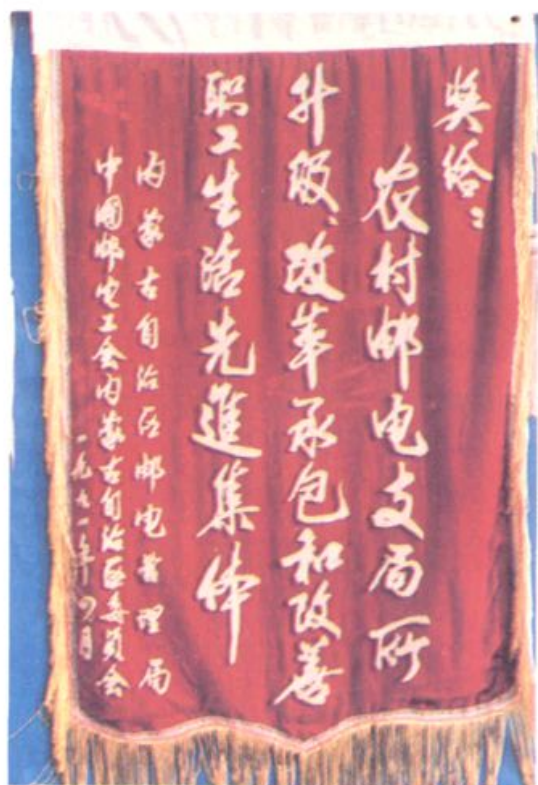 奖给：
农村邮电支局所
升级、改革承包和改善
职工生活先進集体
内蒙古自治区邮电管理局
中国邮电工会内蒙古自治区委员会
一九九一年四月